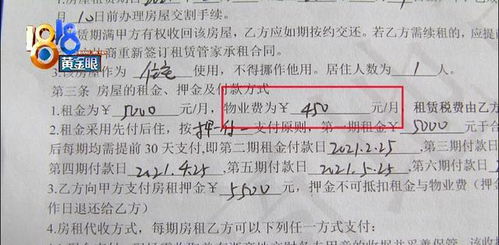 1818
黄金眼
月 10日前办理房屋交割手续。
赁期满甲方有权收回该房屋,乙方应如期按约交还。若乙方需续租的,应提
协商重新签订租赁管家承租合同。
3.该房屋作为 住宅 使用,不得挪作他用。居住人数为 1 人。
第三条 房屋的租金、押金及付款方式
1.租金为¥ 5000 元/月,物业费为¥ 450 元/月,租赁税费由乙方
2.租金采用先付后住,按 押一付一 支付原则,第一期租金¥ 5000 元于合
后每期均需提前30天支付,即第二期付款日 2021.2.25 、第三期付款日
第四期付款日 2021.4.25 、第五期付款日 2021.5.25 、第六期付款日
3.乙方向甲方支付房租押金¥ 5500 元,押金不可抵扣租金与物业费(
作日退还给乙方)
4.房租代收方式,每期房租乙方可以下列任一方式支付: